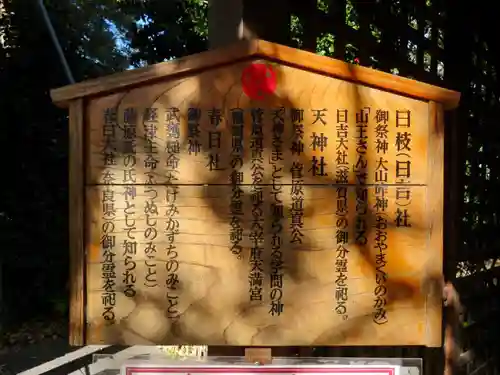 日枝(日吉)社
御祭神 大山咋神(おおやまくいのかみ)
「山王さん」として知られる
日吉大社(滋賀県)の御分霊を祀る。
天神社
御祭神 菅原道真公
「天神さま」として知られる学問の神
菅原道真公を祀る太宰府天満宮
(福岡県)の御分霊を祀る。
春日社
御祭神
武甕槌命(たけみかずちのみこと)
経津主命(ふつぬしのみこと)
藤原氏の氏神として知られる
春日大社(奈良県)の御分霊を祀る。